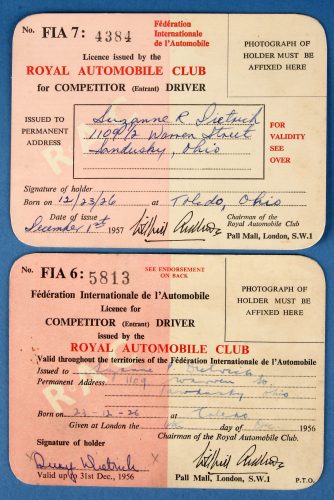 No. FIA 7: 4384
Fédération
Internationale
de l'Automobile
Licence issued by the
ROYAL AUTOMOBILE CLUB
for COMPETITOR (Entrant) DRIVER
PHOTOGRAPH OF
HOLDER MUST BE
AFFIXED HERE
ISSUED TO
PERMANENT
ADDRESS
Suzanne R Dietrich
1109½ Warren Street
Sandusky, Ohio
FOR
VALIDITY
SEE
OVER
RAC
Signature of holder
Born on 12/23/26 at Toledo, Ohio
Date of issue
December 1st 1957
Chairman of the
Royal Automobile Club
Pall Mall, London, S.W.1
No. FIA 6: 5813
SEE ENDORSEMENT
ON BACK
Fédération Internationale de l'Automobile
Licence for
COMPETITOR (Entrant) DRIVER
issued by the
ROYAL AUTOMOBILE CLUB
PHOTOGRAPH OF
HOLDER MUST BE
AFFIXED HERE
Valid throughout the territories of the Fédération Internationale de l'Automobile
Issued to Suzanne Dietrich
Permanent Address 1109 Warren St.
Sandusky Ohio
RAC
Born on 23-12-26 at Toledo
Given at London the day of Dec 1956
Chairman of the Royal Automobile Club.
Signature of holder
x Suzy Dietrich x
Valid up to 31st Dec., 1956
Pall Mall, London, S.W.1
P.T.O.